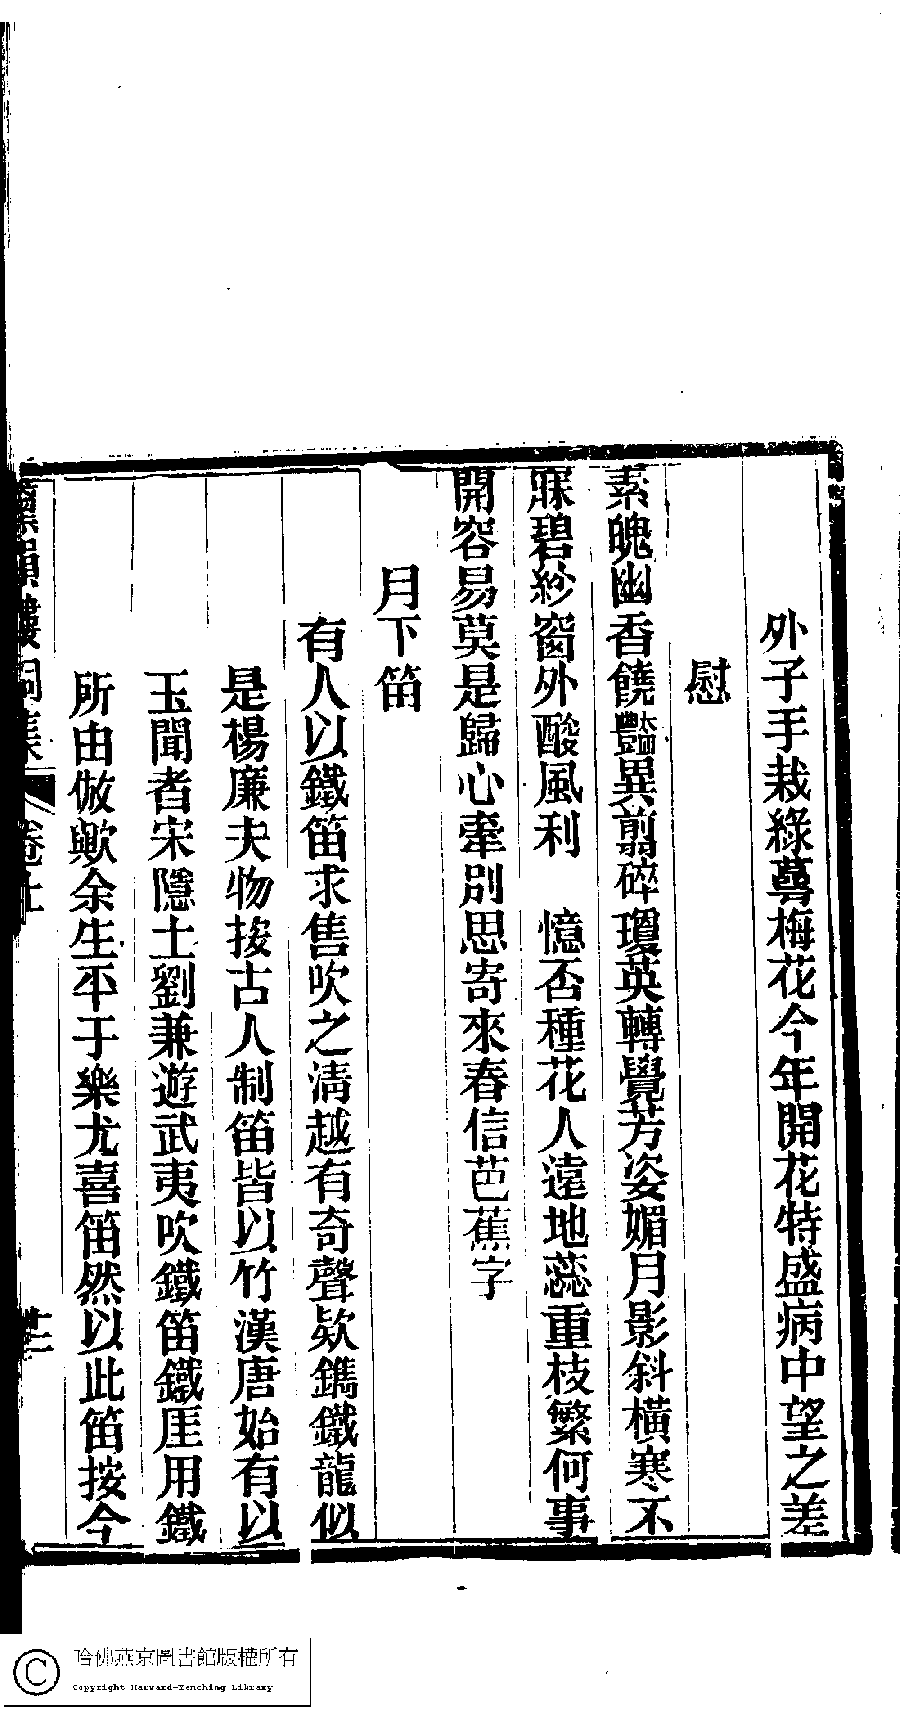 外子手栽綠萼梅花今年開花特盛病中望之差
慰
素魄幽香饒豔異翦碎瓊英轉覺芳姿媚月影斜橫寒不
寐碧紗窗外酸風利　憶否種花人遠地蕊重枝繁何事
開容易莫是歸心牽別思寄來春信芭蕉字
月下笛
有人以鐵笛求售吹之淸越有奇聲欵鐫鐵龍似
是楊廉夫物按古人制笛皆以竹漢唐始有以
玉聞者宋隱士劉兼遊武夷吹鐵笛鐵厓用鐵
所由倣歟余生平于樂尤喜笛然以此笛按今
樓詞集
卷上
十二
哈佛燕京圖書館版權所有
Copyright Harvard-Yenching Library